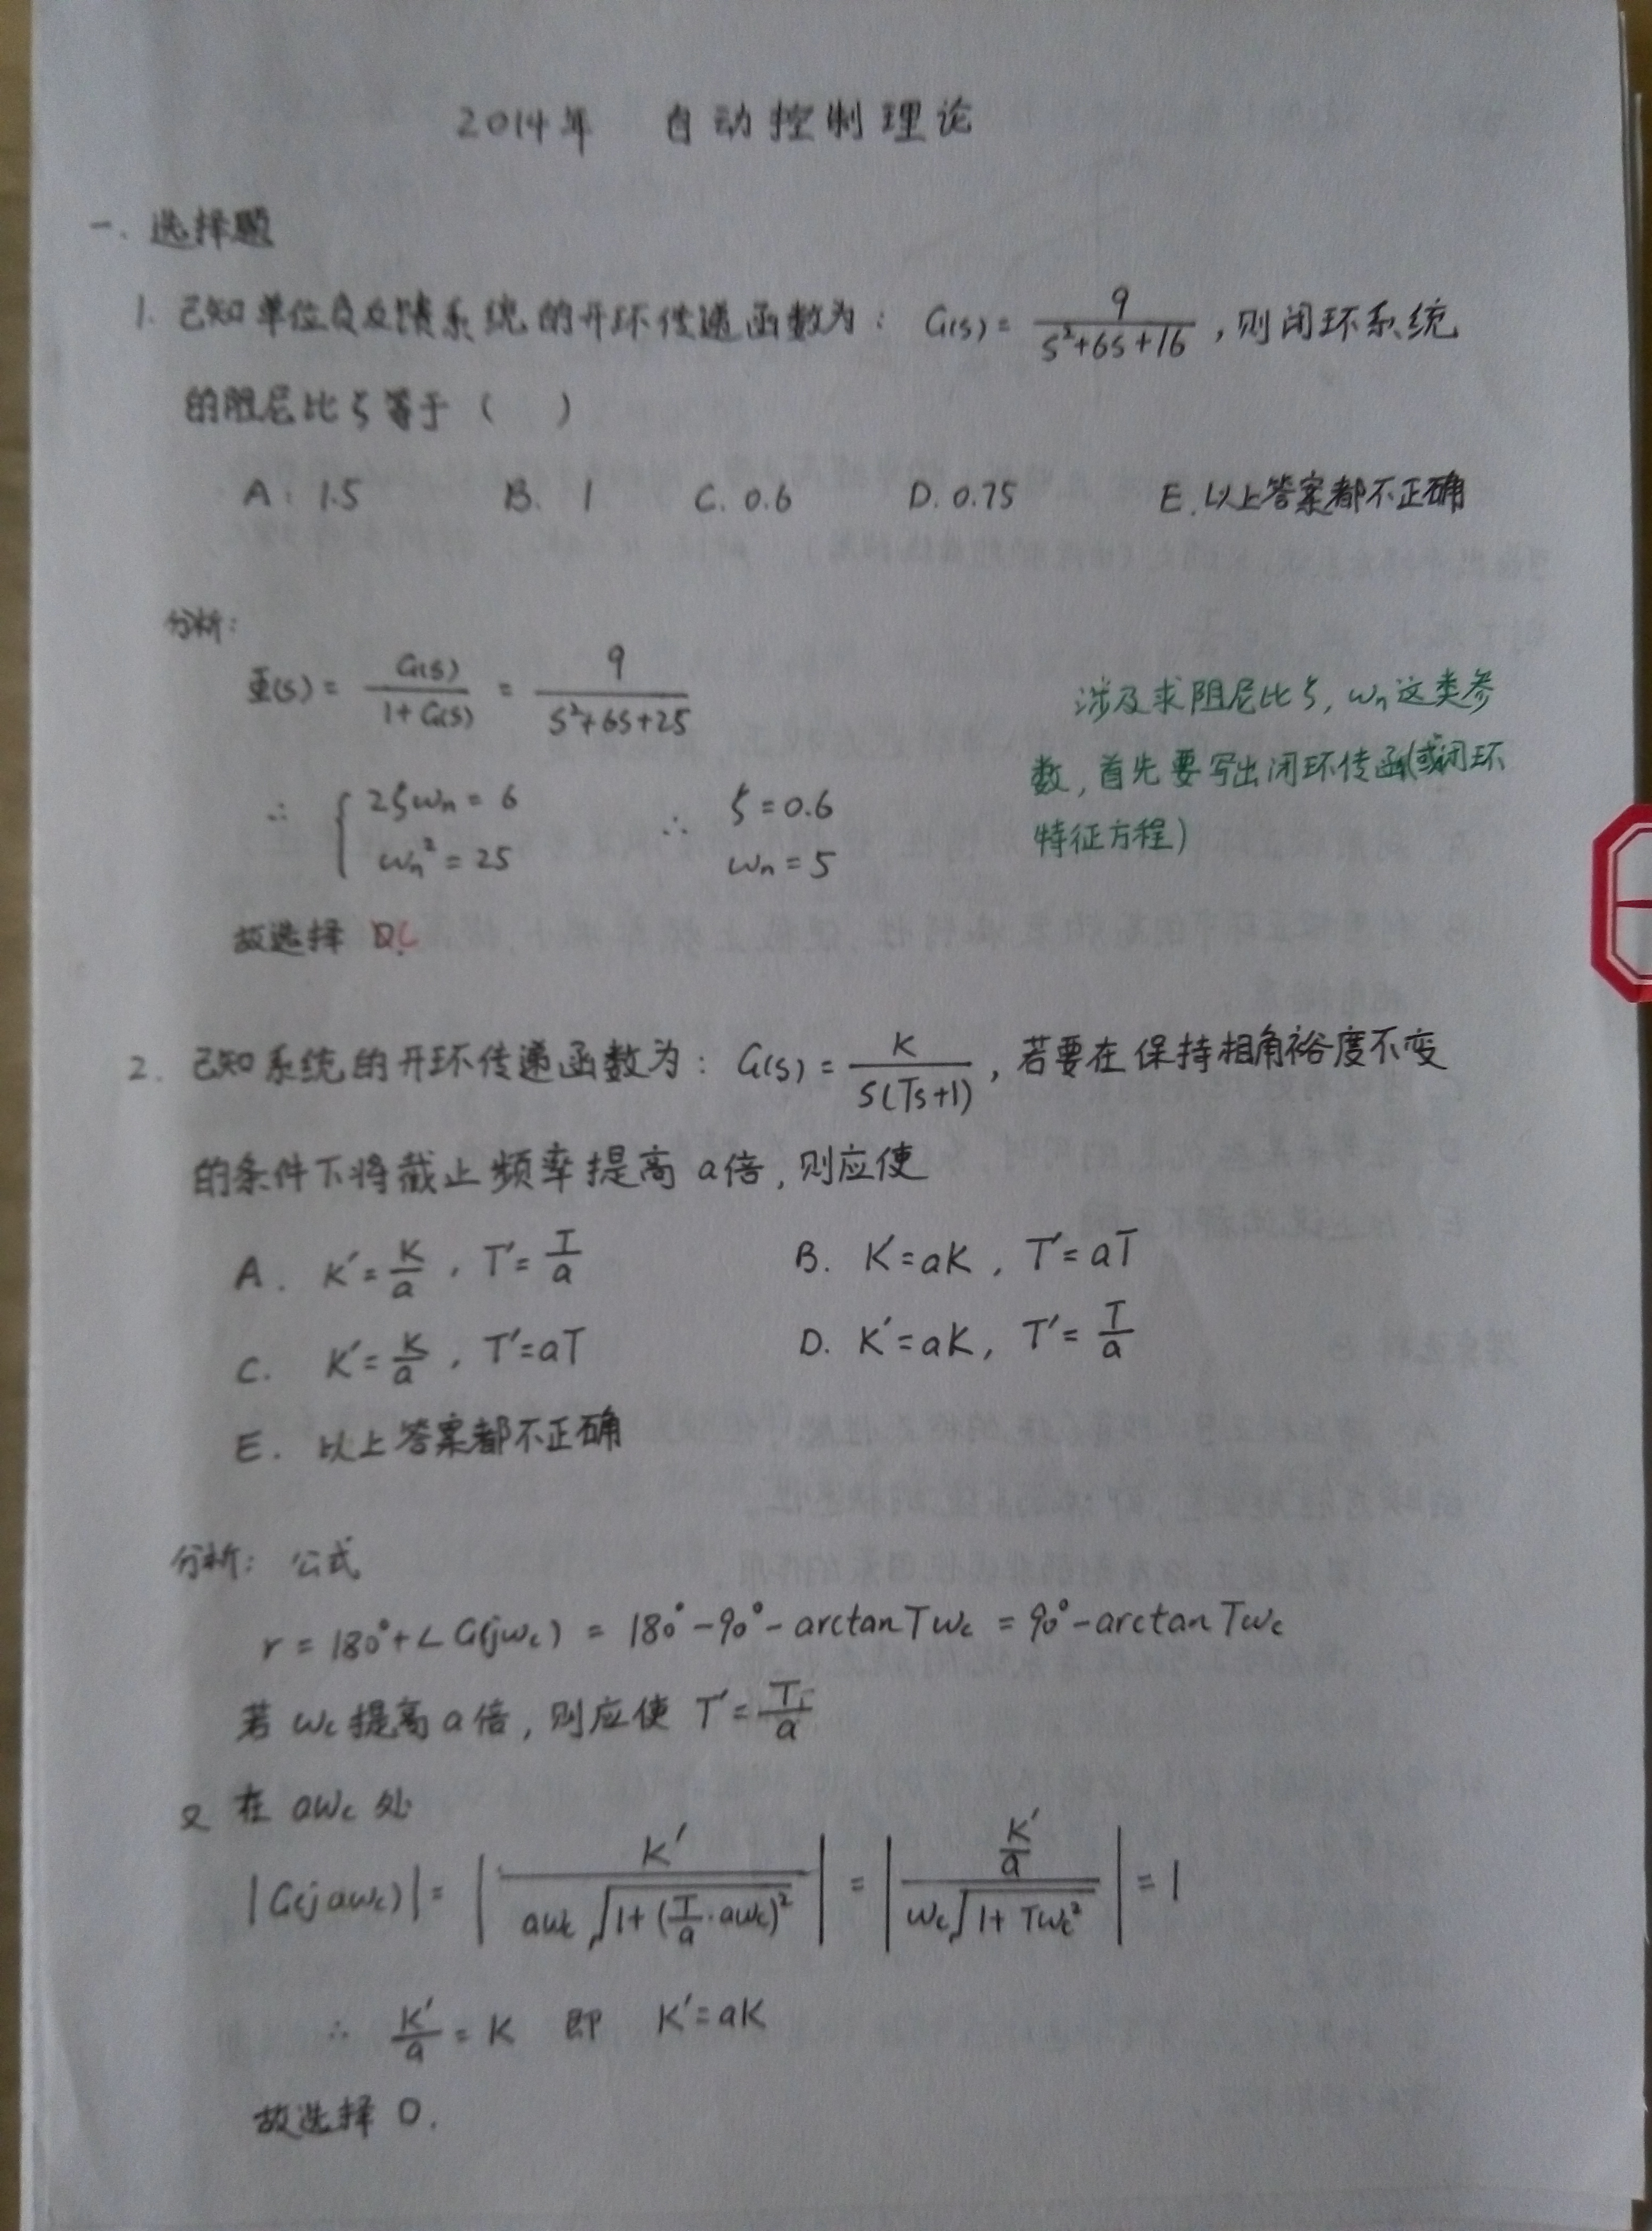 2014年 自动控制理论
一. 选择题
1. 已知单位负反馈系统的开环传递函数为: G(s) = 9/(s²+6s+16), 则闭环系统
的阻尼比ζ等于 ( )
A. 1.5 B. 1 C. 0.6 D. 0.75 E. 以上答案都不正确
分析:
Φ(s) = G(s)/(1+G(s)) = 9/(s²+6s+25)
∴ { 2ζωn = 6 ∴ ζ = 0.6
ωn² = 25 ωn = 5
涉及求阻尼比ζ, ωn这类参
数, 首先要写出闭环传函(或闭环
特征方程)
故选择 C
2. 已知系统的开环传递函数为: G(s) = K/(s(Ts+1)), 若要在保持相角裕度不变
的条件下将截止频率提高a倍, 则应使
A. K′ = K/a , T′ = T/a B. K′ = aK , T′ = aT
C. K′ = K/a , T′ = aT D. K′ = aK, T′ = T/a
E. 以上答案都不正确
分析: 公式
r = 180° + ∠G(jωc) = 180° - 90° - arctan Tωc = 90° - arctan Tωc
若 ωc 提高a倍, 则应使 T′ = T/a
又 在 aωc 处
|G(jaωc)| = | K′/(aωc√(1+(T/a·aωc)²)) | = | (K′/a)/(ωc√(1+Tωc²)) | = 1
∴ K′/a = K 即 K′ = aK
故选择 D.